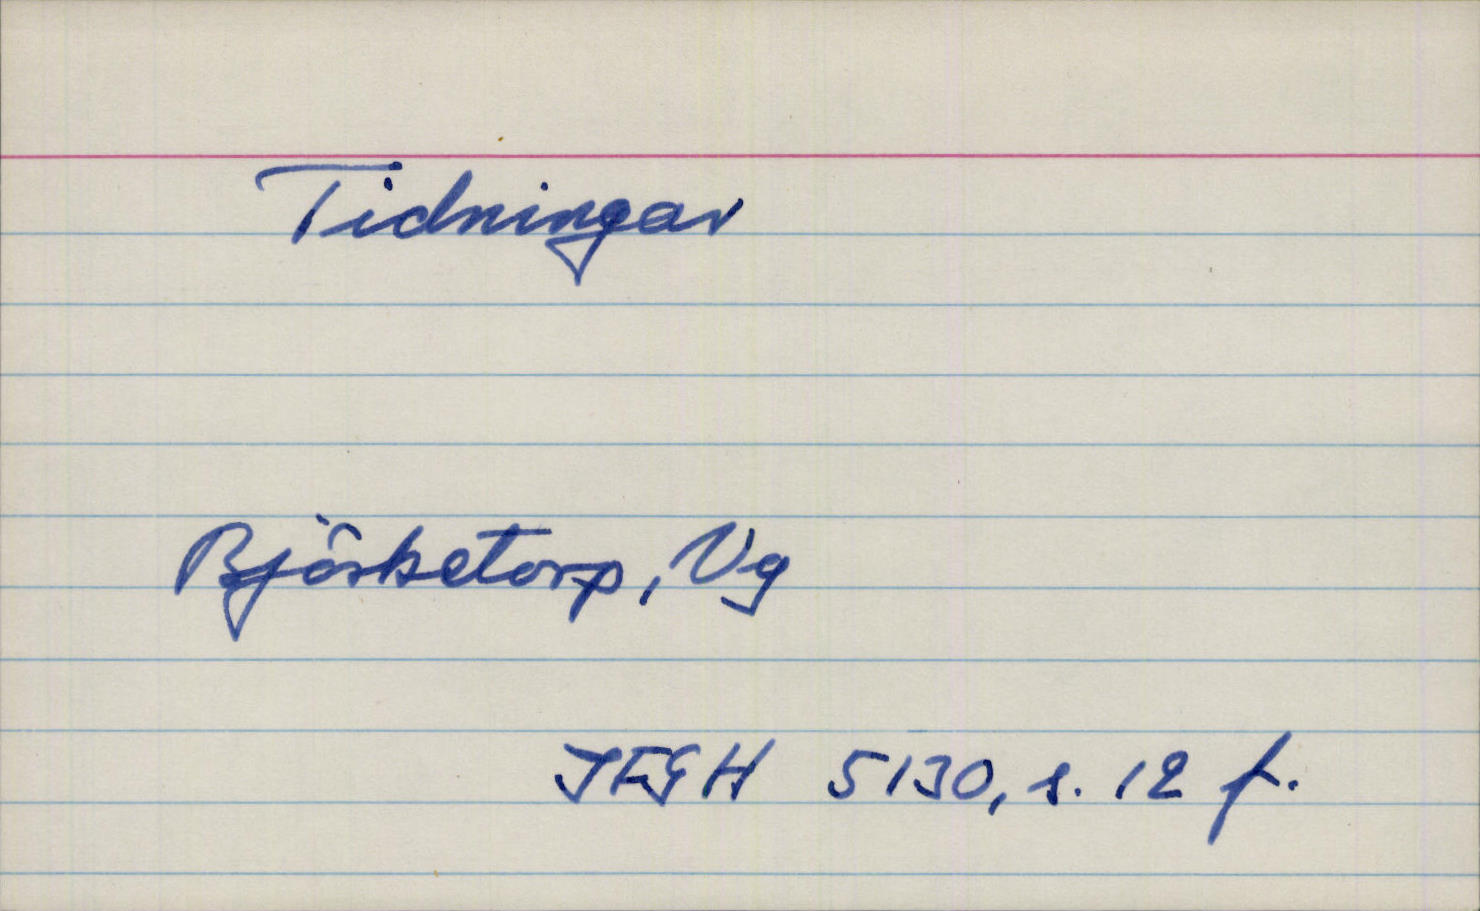 Tidningar
Björketorp, Vg
IFGH 5130, s. 12 f.